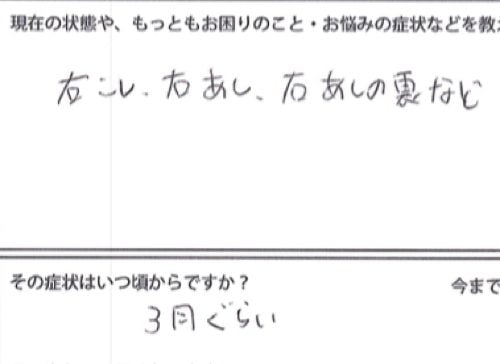 現在の状態や、もっともお困りのこと・お悩みの症状などを教
右こし、右あし、右あしの裏など
その症状はいつ頃からですか？
今まで
3月ぐらい